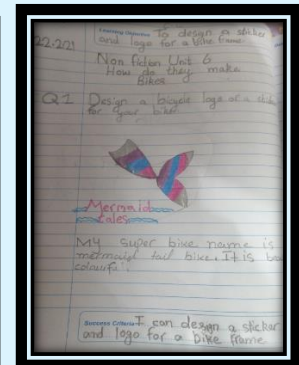 22-2-21
Learning Objective To design a sticker
and logo for a bike frame.
Non fiction Unit 6
How do they make
Bikes
Q1 Design a bicycle logo or a
for your bike
Mermaid
tales
My super bike name is
mermaid tail bike. It is
Success Criteria I can design a sticker
and logo for a bike frame.